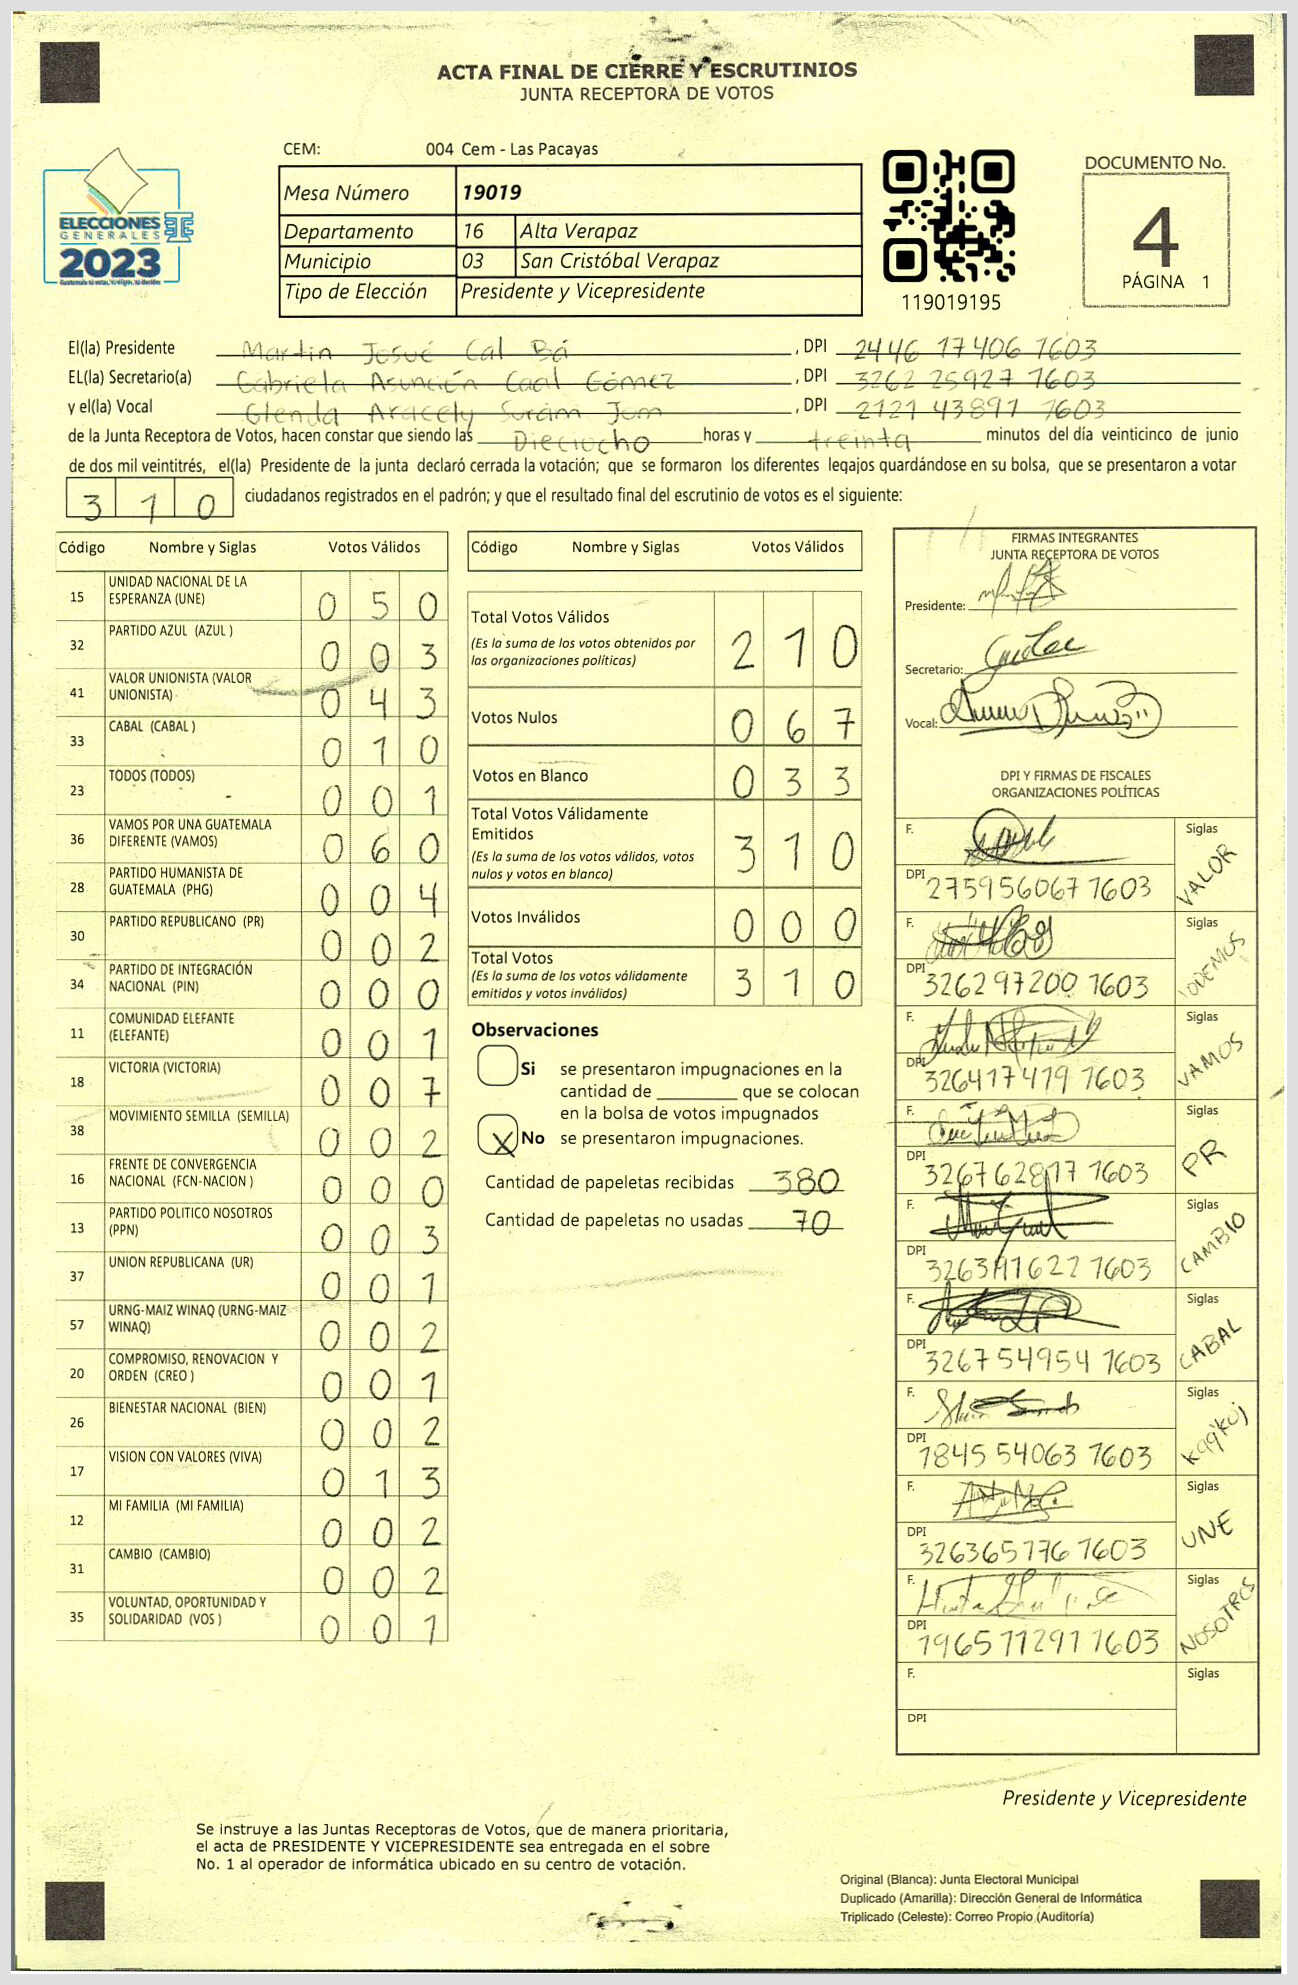 ACTA FINAL DE CIERRE Y ESCRUTINIOS
JUNTA RECEPTORA DE VOTOS
CEM: 004 Cem - Las Pacayas
ELECCIONES
GENERALES
2023
Mesa Número 19019
Departamento 16 Alta Verapaz
Municipio 03 San Cristóbal Verapaz
Tipo de Elección Presidente y Vicepresidente
119019195
DOCUMENTO No.
4
PÁGINA 1
El(la) Presidente Martin Josué Cal Bá, DPI 2446 17406 1603
EL(la) Secretario(a) Gabriela Asunción Caal Gómez, DPI 3262 25927 1603
y el(la) Vocal Glenda Aracely Suram Jom, DPI 2121 43891 1603
de la Junta Receptora de Votos, hacen constar que siendo las Dieciocho horas y treinta minutos del día veinticinco de junio
de dos mil veintitrés, el(la) Presidente de la junta declaró cerrada la votación; que se formaron los diferentes legajos guardándose en su bolsa, que se presentaron a votar
310 ciudadanos registrados en el padrón; y que el resultado final del escrutinio de votos es el siguiente:
Código Nombre y Siglas Votos Válidos
15 UNIDAD NACIONAL DE LA ESPERANZA (UNE) 0 5 0
32 PARTIDO AZUL (AZUL ) 0 0 3
41 VALOR UNIONISTA (VALOR UNIONISTA) 0 4 3
33 CABAL (CABAL ) 0 1 0
23 TODOS (TODOS) 0 0 1
36 VAMOS POR UNA GUATEMALA DIFERENTE (VAMOS) 0 6 0
28 PARTIDO HUMANISTA DE GUATEMALA (PHG) 0 0 4
30 PARTIDO REPUBLICANO (PR) 0 0 2
34 PARTIDO DE INTEGRACIÓN NACIONAL (PIN) 0 0 0
11 COMUNIDAD ELEFANTE (ELEFANTE) 0 0 1
18 VICTORIA (VICTORIA) 0 0 7
38 MOVIMIENTO SEMILLA (SEMILLA) 0 0 2
16 FRENTE DE CONVERGENCIA NACIONAL (FCN-NACION ) 0 0 0
13 PARTIDO POLITICO NOSOTROS (PPN) 0 0 3
37 UNION REPUBLICANA (UR) 0 0 1
57 URNG-MAIZ WINAQ (URNG-MAIZ WINAQ) 0 0 2
20 COMPROMISO, RENOVACION Y ORDEN (CREO ) 0 0 1
26 BIENESTAR NACIONAL (BIEN) 0 0 2
17 VISION CON VALORES (VIVA) 0 1 3
12 MI FAMILIA (MI FAMILIA) 0 0 2
31 CAMBIO (CAMBIO) 0 0 2
35 VOLUNTAD, OPORTUNIDAD Y SOLIDARIDAD (VOS ) 0 0 1
Código Nombre y Siglas Votos Válidos
Total Votos Válidos 2 1 0
(Es la suma de los votos obtenidos por
las organizaciones políticas)
Votos Nulos 0 6 7
Votos en Blanco 0 3 3
Total Votos Válidamente
Emitidos 3 1 0
(Es la suma de los votos válidos, votos
nulos y votos en blanco)
Votos Inválidos 0 0 0
Total Votos 3 1 0
(Es la suma de los votos válidamente
emitidos y votos inválidos)
Observaciones
Si se presentaron impugnaciones en la
cantidad de ________ que se colocan
en la bolsa de votos impugnados
X No se presentaron impugnaciones.
Cantidad de papeletas recibidas 380
Cantidad de papeletas no usadas 70
FIRMAS INTEGRANTES
JUNTA RECEPTORA DE VOTOS
Presidente:
Secretario:
Vocal:
DPI Y FIRMAS DE FISCALES
ORGANIZACIONES POLÍTICAS
F. Siglas VALOR
DPI 275956067 1603
F. Siglas PODEMOS
DPI 326297200 1603
F. Siglas VAMOS
DPI 326417419 1603
F. Siglas PR
DPI 326762817 1603
F. Siglas CAMBIO
DPI 1603
F. Siglas CABAL
DPI 326754954 1603
F. Siglas
DPI 1845 54063 1603
F. Siglas UNE
DPI 326365776 1603
F. Siglas NOSOTROS
DPI 1965 11291 1603
F. Siglas
DPI
Presidente y Vicepresidente
Se instruye a las Juntas Receptoras de Votos, que de manera prioritaria,
el acta de PRESIDENTE Y VICEPRESIDENTE sea entregada en el sobre
No. 1 al operador de informática ubicado en su centro de votación.
Original (Blanca): Junta Electoral Municipal
Duplicado (Amarilla): Dirección General de Informática
Triplicado (Celeste): Correo Propio (Auditoría)